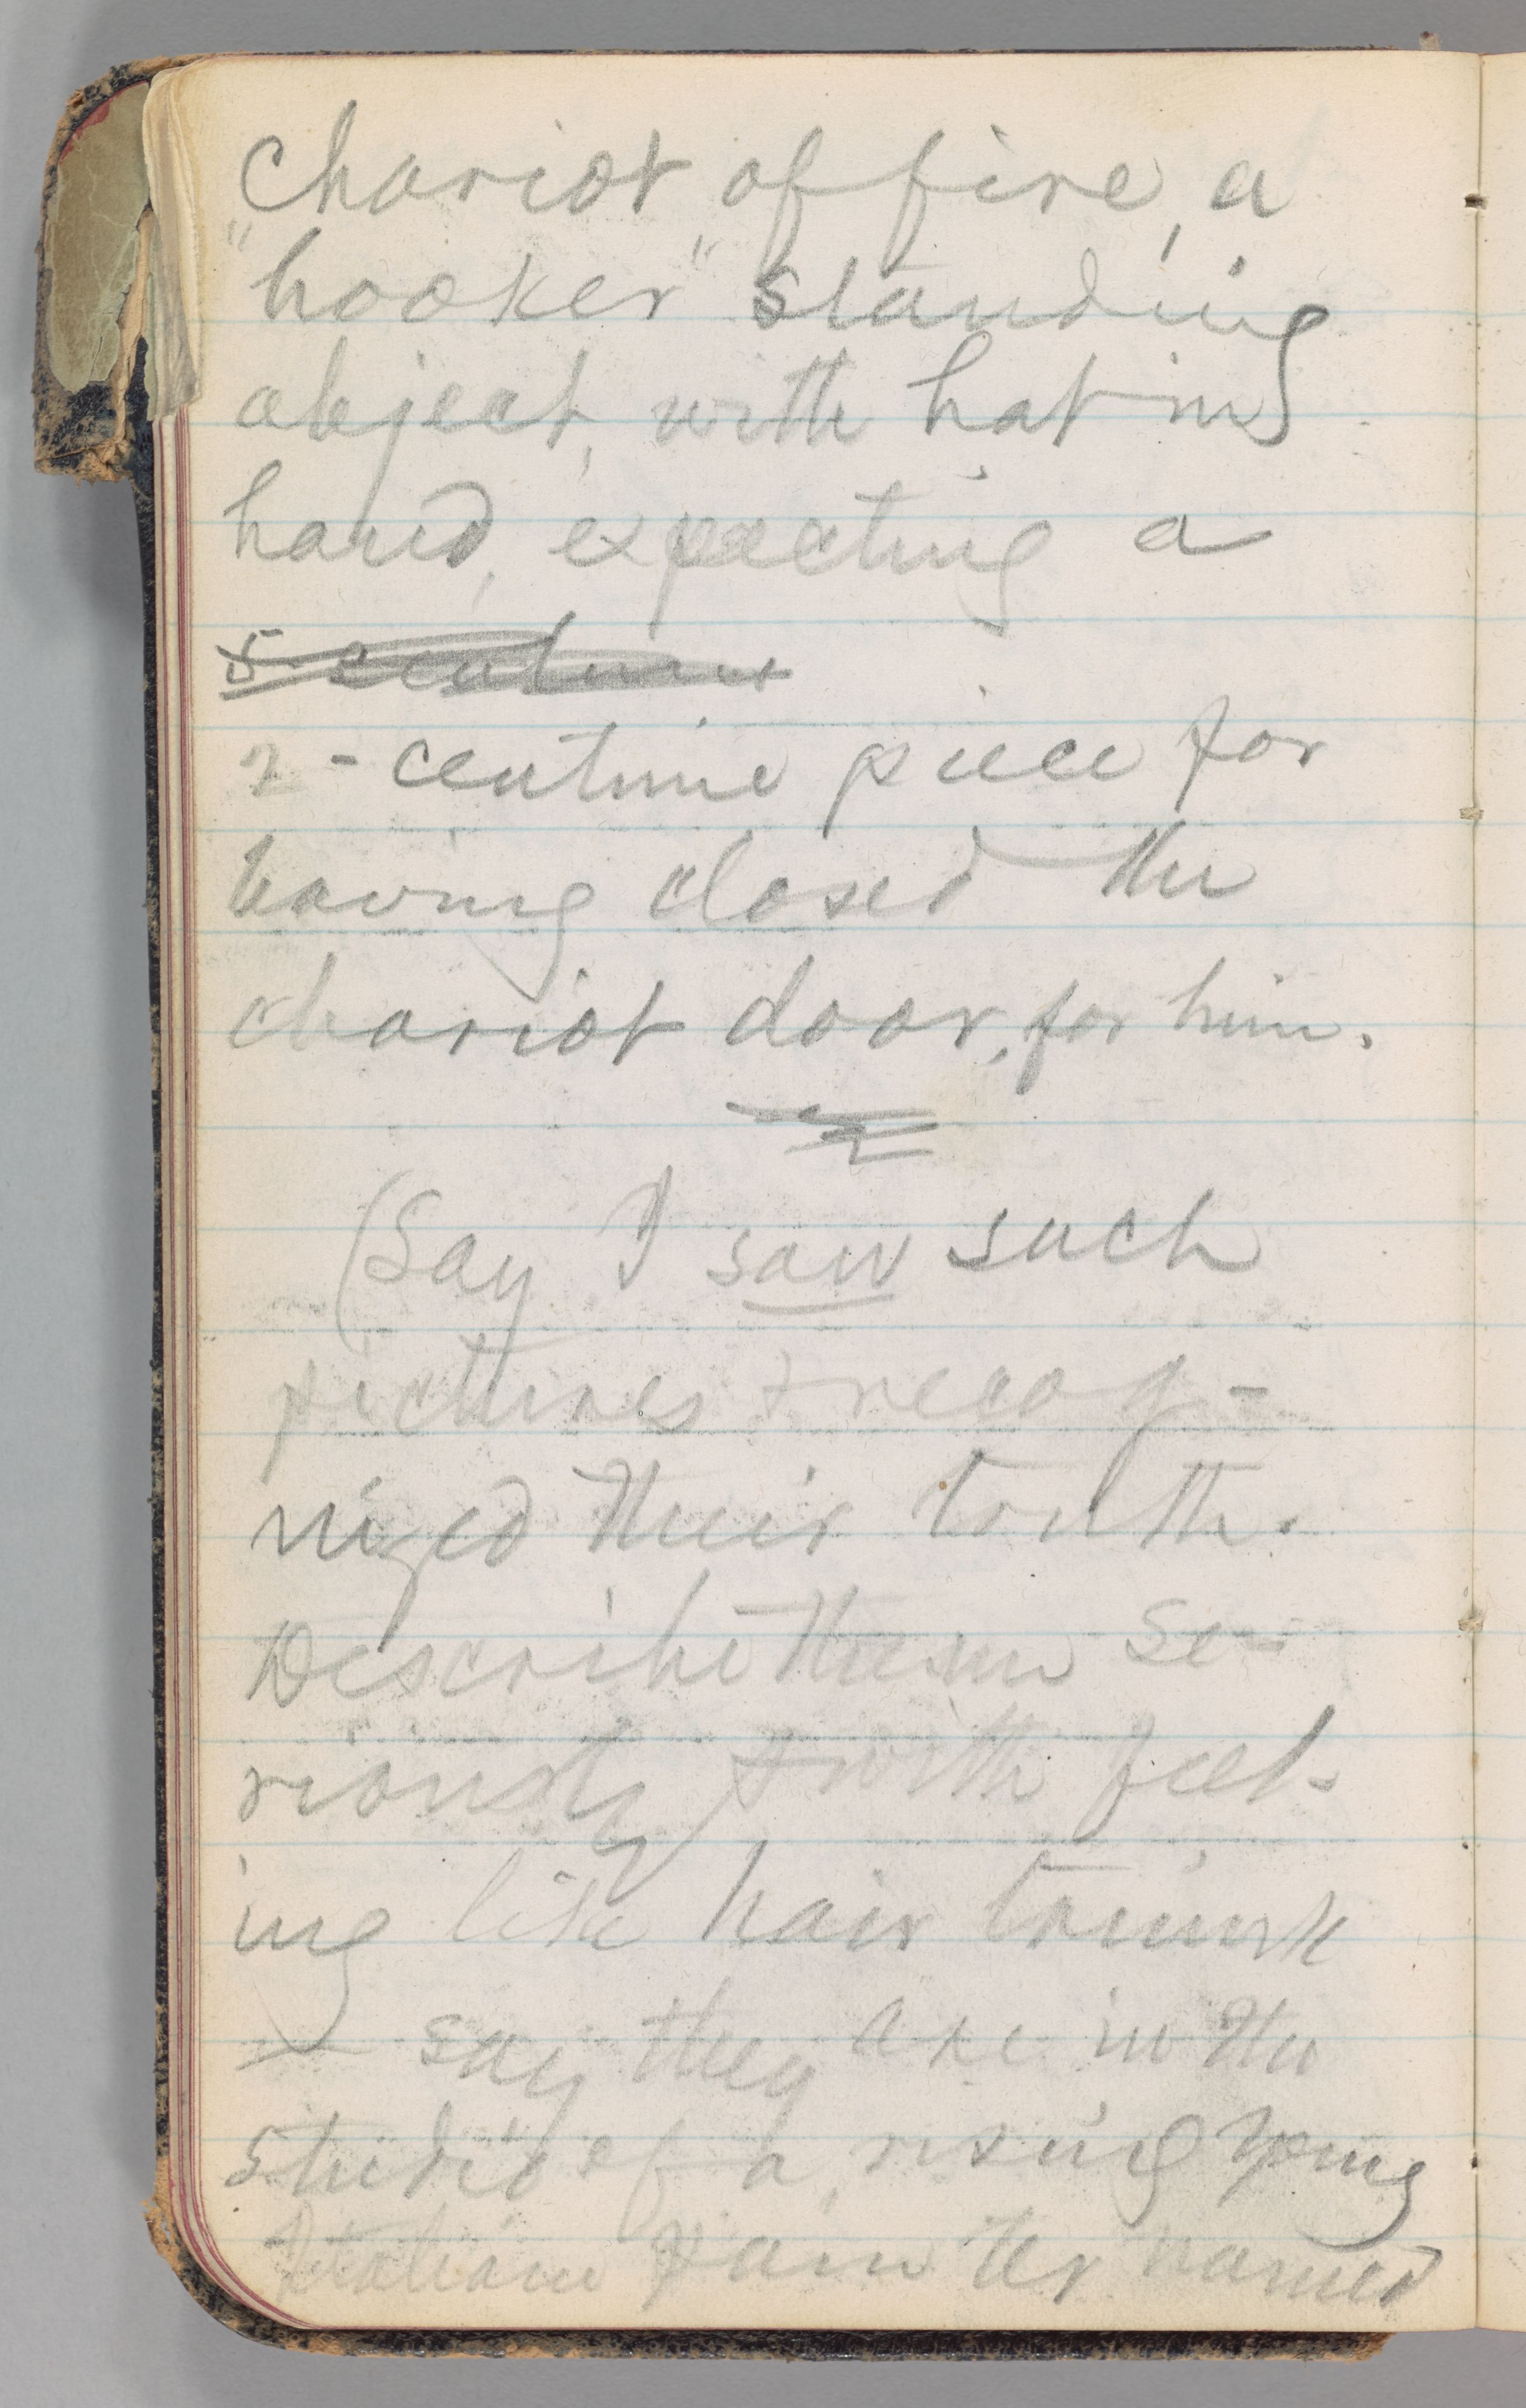 chariot of fire, a
"hooker" standing
abject, with hat in
hand, expecting a
5-centime
2-centime piece for
having closed the
chariot door, for him.
(Say I saw such
pictures & recog-
nized their truth.
Describe them se-
riously & with feel-
ing like hair trunk
— say they are in the
studio of a rising young
Italian painter named